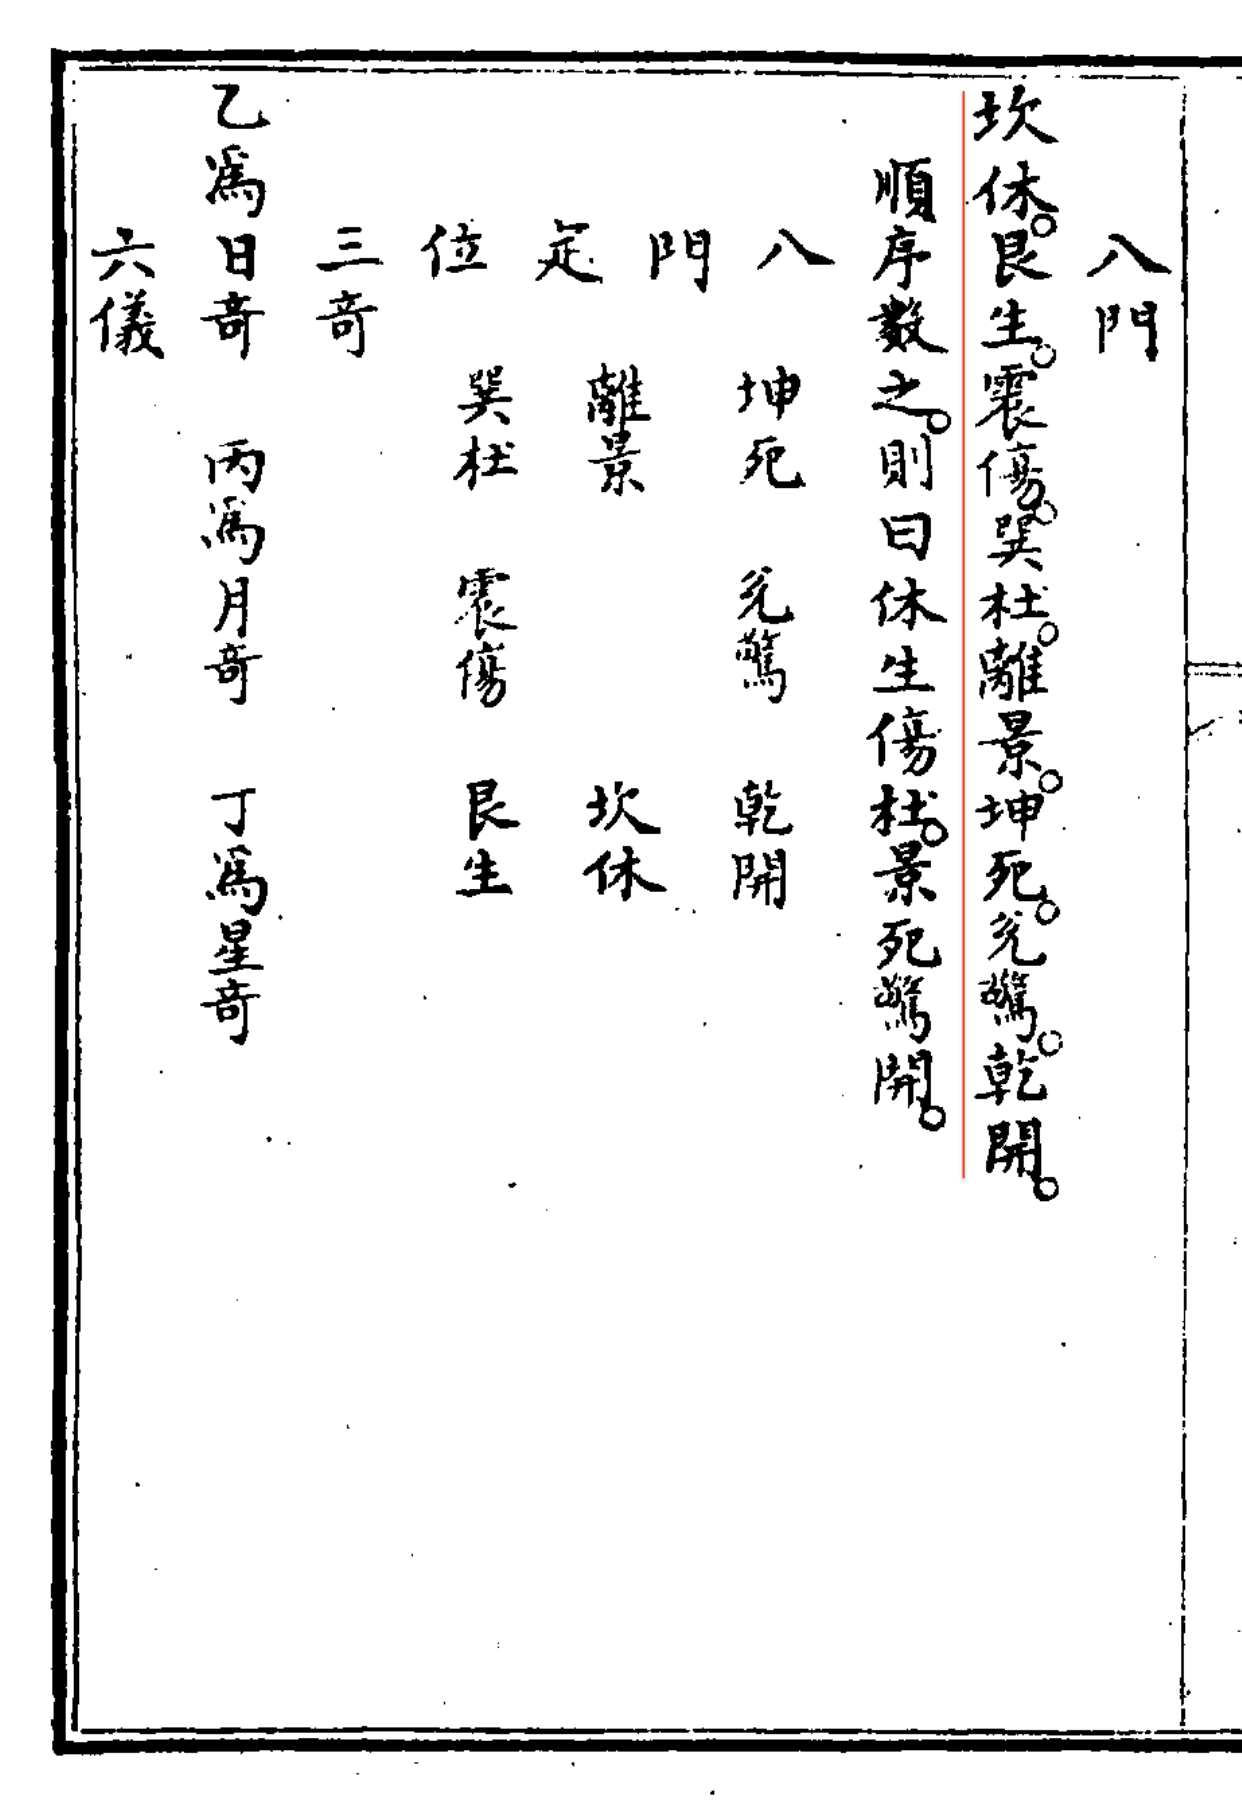 八門
坎休。艮生。震傷。巽杜。離景。坤死。兌驚。乾開。
順序數之。則曰休生傷杜。景死驚開。
八門定位
坤死 兌驚 乾開
離景 坎休
巽杜 震傷 艮生
三竒
乙爲日竒 丙爲月竒 丁爲星竒
六儀